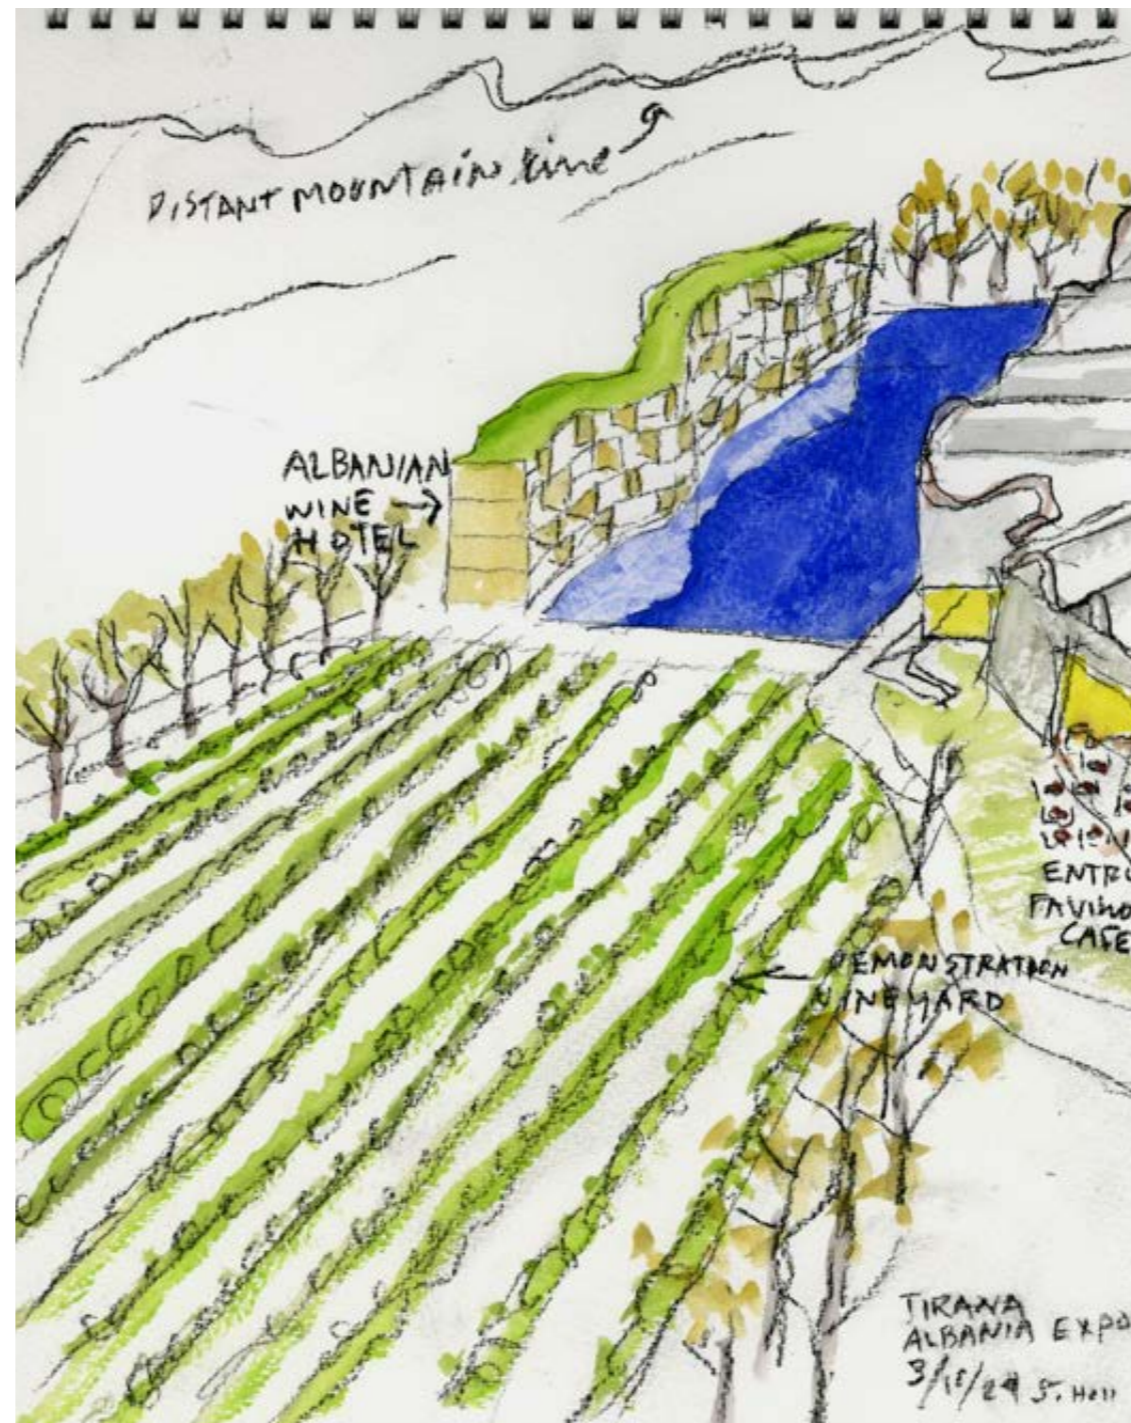 DISTANT MOUNTAIN Line
ALBANIAN
WINE
HOTEL
CAFE
DEMONSTRATION
VINEYARD
TIRANA
ALBANIA EXPO
S. Holl